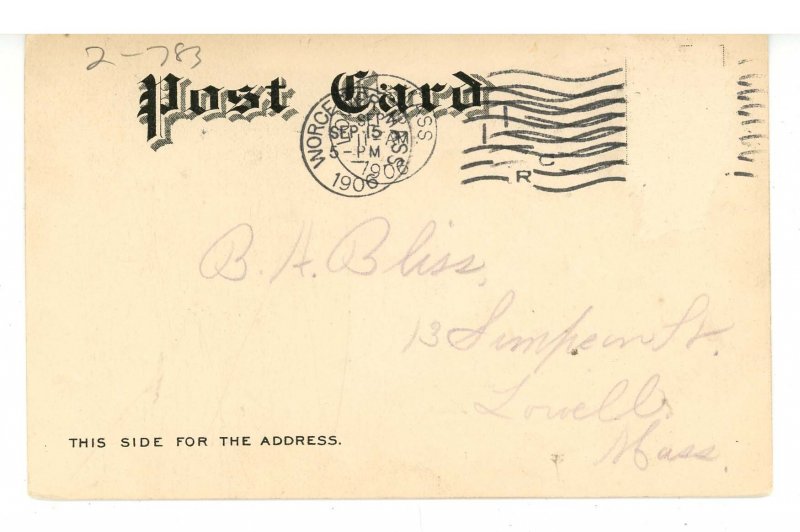 2-783
Post Card
WORCESTER MASS
SEP 15
5-PM
1906
SEP
AM
1906
R C
B. H. Bliss,
13 Simpson St.
Lowell.
Mass.
THIS SIDE FOR THE ADDRESS.